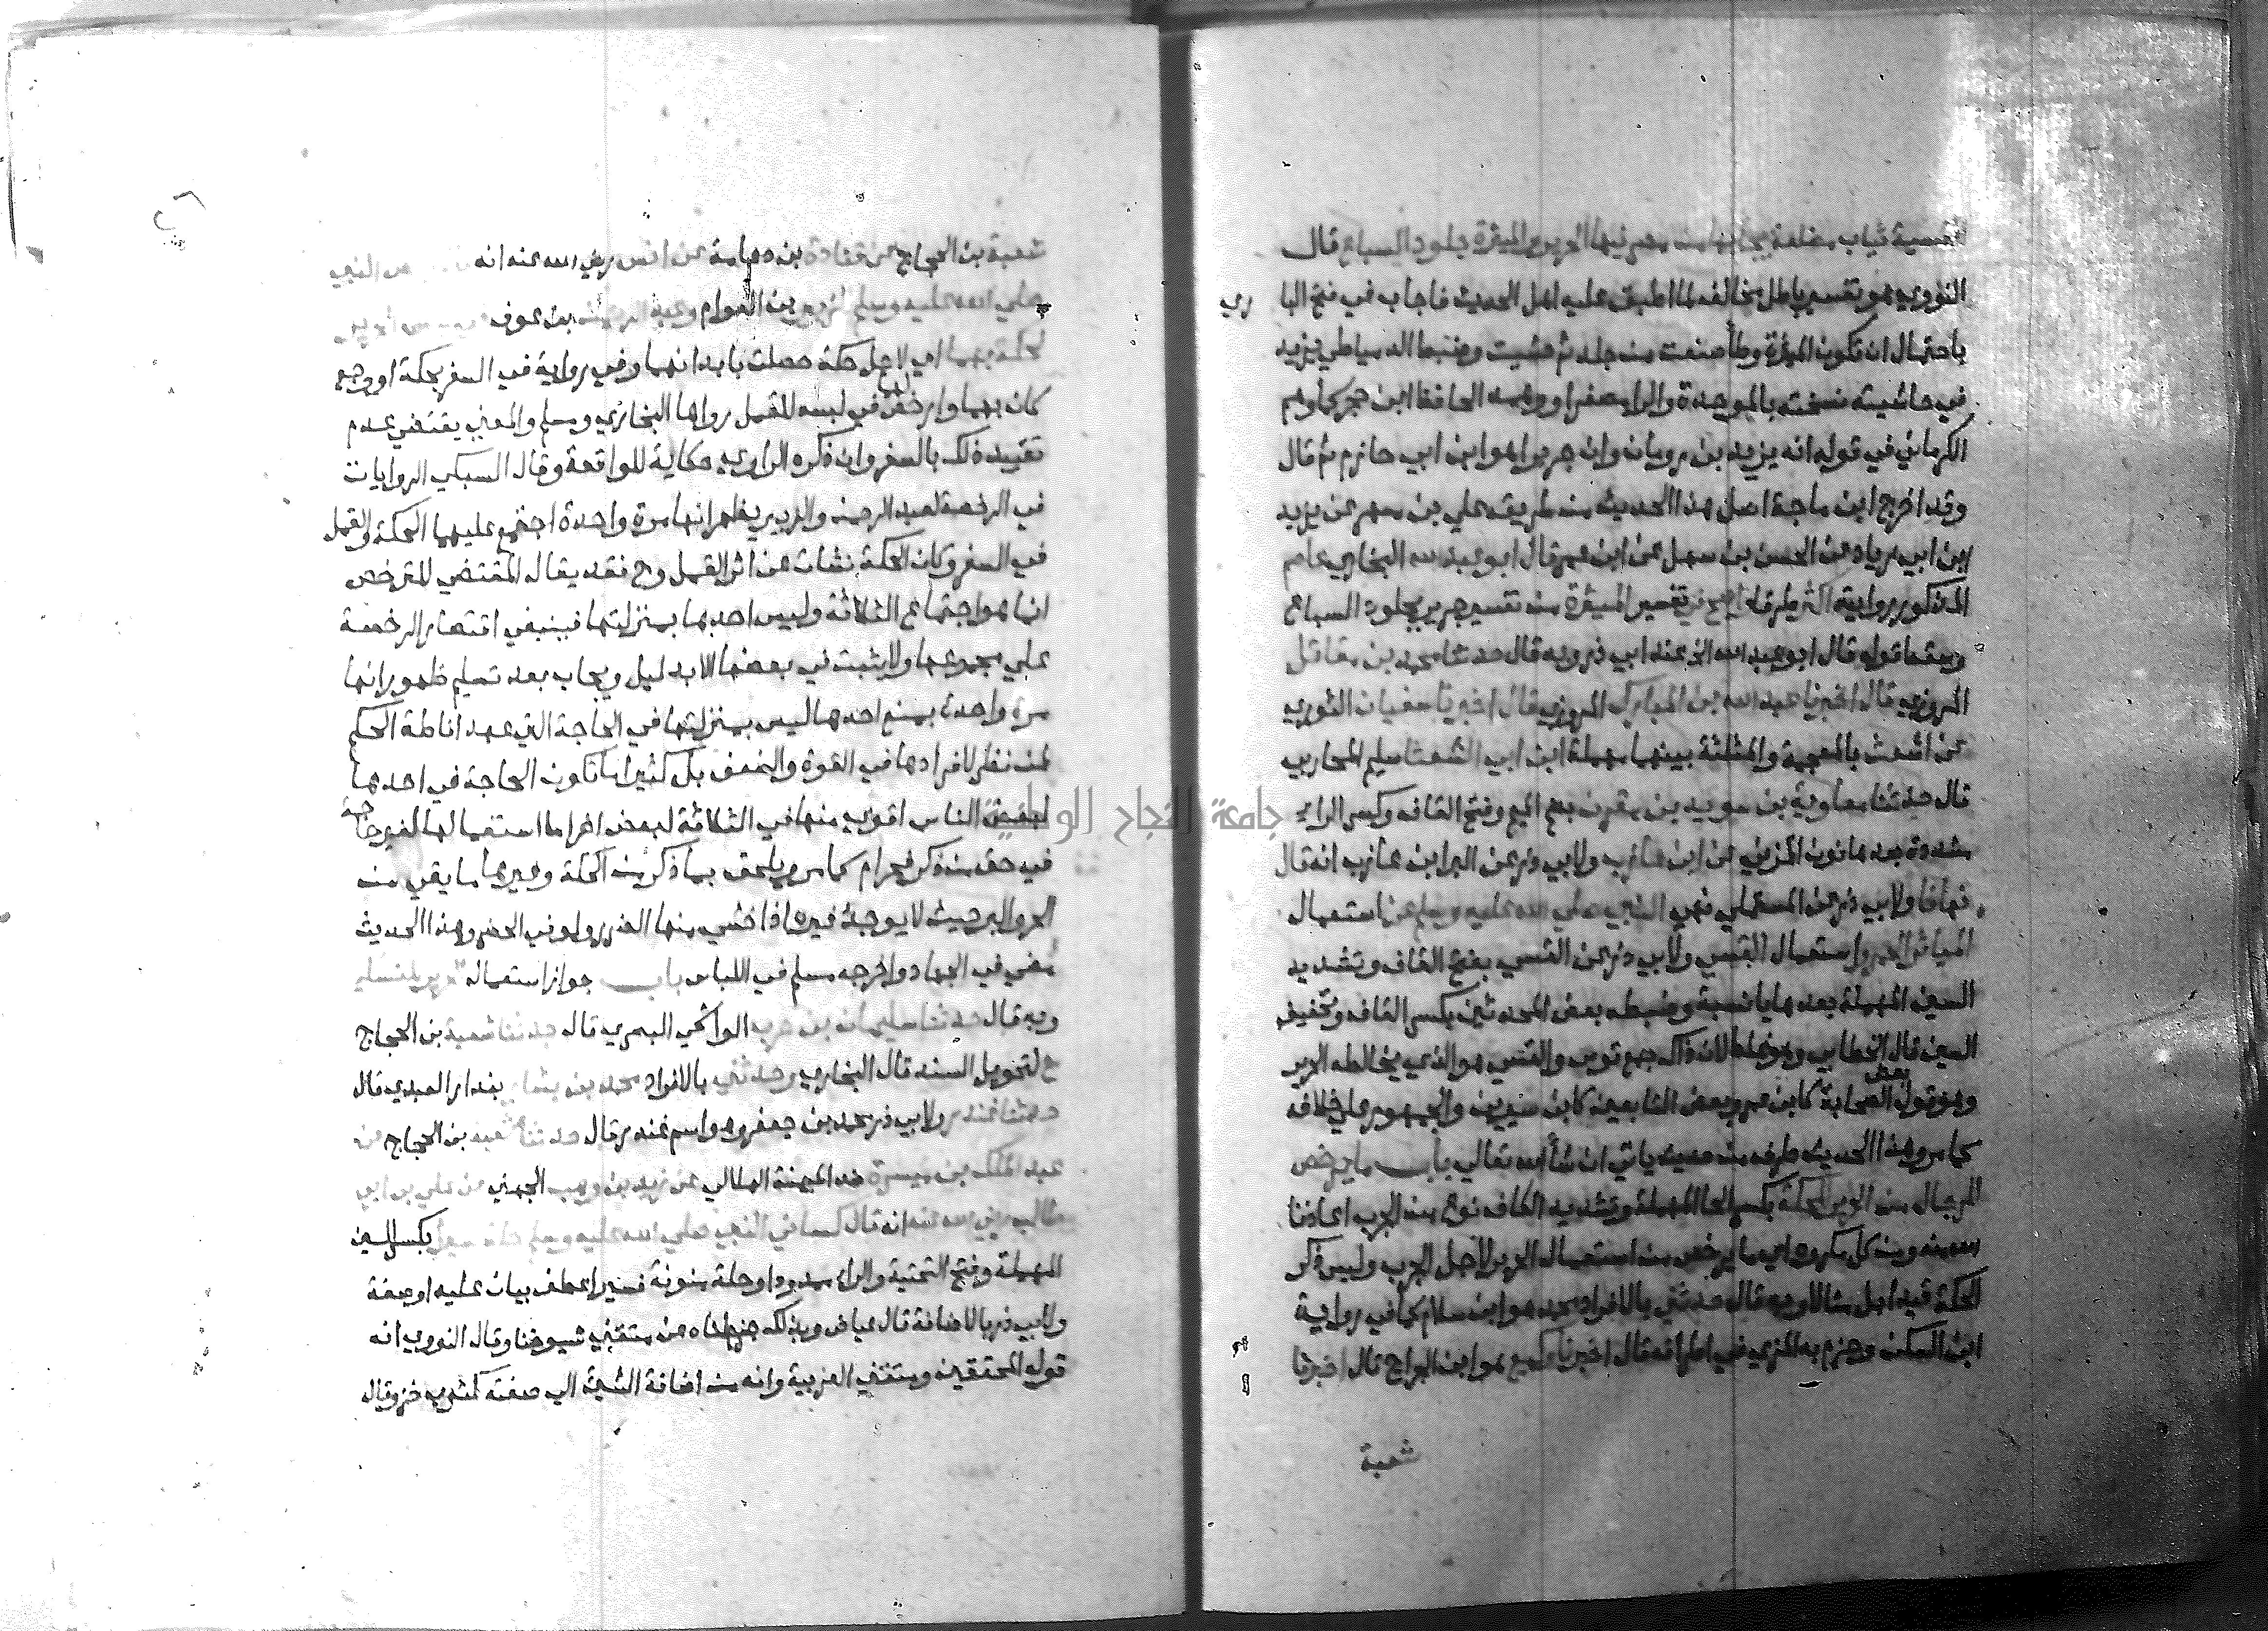 القسية ثياب مضلعة يجاء بها من مصر فيها الحرير والميثرة جلود السباع قال
النووي هو تفسير باطل مخالف لما اطبق عليه اهل الحديث فاجاب في فتح البا ري
باحتمال ان تكون الميثرة وطأ صنعت من جلد ثم حشيت وضبط الدمياطي يزيد
في حاشية نسخته بالموحدة والرا مصغرا ووهمه الحافظ ابن حجر كما وهم
الكرماني في قوله انه يزيد بن رومان وان جرير اهو ابن ابي حازم ثم قال
وقد اخرج ابن ماجة اصل هذا الحديث من طريق علي بن مسهر عن يزيد
ابن ابي زياد عن الحسن بن سهل عن ابن عمر قال ابو عبد الله البخاري عاصم
المذكور روايته اكثر طرقا واصح في تفسير الميثرة من تفسير جرير بجلود السباع
وسقط قوله قال ابو عبد الله الخ عند ابي ذر وبه قال حدثنا محمد بن مقاتل
المروزي قال اخبرنا عبد الله بن المبارك المروزي قال اخبرنا سفيان الثوري
عن اشعث بالمعجمة والمثلثة بينهما مهملة ابن ابي الشعثا سليم المحاربي
قال حدثنا معاوية بن سويد بن مقرن بضم الميم وفتح القاف وكسر الراء
مشددة بعدها نون المزني عن ابن عازب ولابي ذر عن البرا بن عازب انه قال
نهانا ولابي ذر عن المستملي نهى النبي صلي الله عليه وسلم عن استعمال
المياثر الحمر واستعمال القسي ولابي ذر عن القسي بفتح القاف وتشديد
السين المهملة بعدها يا نسبة وضبطه بعض المحدثين بكسر القاف وتخفيف
السين قال الخطابي وهو غلط لان ذاك جمع قوس والقسي هو الذي يخالطه الحرير
وهو قول بعض الصحابة كابن عمر وبعض التابعين كابن سيرين والجمهور علي خلافه
كما مر وهذا الحديث طرف من حديث ياتي ان شأ الله تعالي باب ما يرخص
للرجال من الحرير للحكة بكسر الحا المهملة وتشديد الكاف نوع من الجرب اعاذنا
الله منه ومن كل مكروه اي ما يرخص من استعمال الحرير لاجل الجرب وليس ذكر
الحكة قيدا بل مثالا وبه قال حدثني بالافراد محمد هو ابن سلام كما في رواية
ابن السكن وجزم به المزي في اطرافه قال اخبرنا وكيع هو ابن الجراح قال اخبرنا
شعبة
شعبة بن الحجاج عن قتادة بن دعامة عن انس رضي الله عنه انه قال رخص النبي
صلي الله عليه وسلم للزبير بن العوام وعبد الرحمن بن عوف في لبس الحرير
لحكة بهما اي لاجل حكة حصلت بابدانهما وفي رواية في السفر لحكة او وجع
كان بهما وارخص لهما في لبسه للقمل رواها البخاري ومسلم والمعني يقتضي عدم
تقييد ذلك بالسفر وان ذكره الراوي حكاية للواقعة وقال السبكي الروايات
في الرخصة لعبد الرحمن والزبير يظهر انها مرة واحدة اجتمع عليهما الحكة والقمل
في السفر وكان الحكة نشأت عن اثر القمل وح فقد يقال المقتضي للترخص
انما هو اجتماع الثلاثة وليس احدها بمنزلتها فينبغي اقتصار الرخصة
علي مجموعها ولا يثبت في بعضها الا بدليل ويجاب بعد تسليم ظهور انها
مرة واحدة بمنع احدها ليس بمنزلتها في الحاجة التي عهد اناطة الحكم
لها من نظر لافرادها في القوة والضعف بل كثيرا ما تكون الحاجة في احدها
لبعض الناس اقوي منها في الثلاثة لبعض اخر اما استعمالها لغير حاجة
في حق من ذكر فحرام كما مر ويلحق بما ذكر من الحكة وغيرها ما يقي من
الحر والبرد حيث لا يوجد غيره اذا خشي منهما الضرر ولو في الحضر وهذا الحديث
مضي في الجهاد واخرجه مسلم في اللباس باب جواز استعمال الحرير للنسا
وبه قال حدثنا سليمان بن حرب الواشحي البصري قال حدثنا شعبة بن الحجاج
ح لتحويل السند قال البخاري وحدثني بالافراد محمد بن بشار بندار العبدي قال
حدثنا غندر ولابي ذر محمد بن جعفر وهو اسم غندر قال حدثنا شعبة بن الحجاج عن
عبد الملك بن ميسرة ضد الميمنة الهلالي عن زيد بن وهب الجهني عن علي بن ابي
طالب رضي الله عنه انه قال كساني النبي صلي الله عليه وسلم حلة سيرا بكسر السين
المهملة وفتح التحتية والراء ممدودا وحلة منونة فسيرا عطف بيان عليه او صفة
ولابي ذر بالاضافة قال عياض وبذلك ضبطناه عن متقني شيوخنا وقال النووي انه
قول المحققين ومتقني العربية وانه من اضافة الشيء الي صفته كثوب خز وقال
جامعة النجاح الوطنية